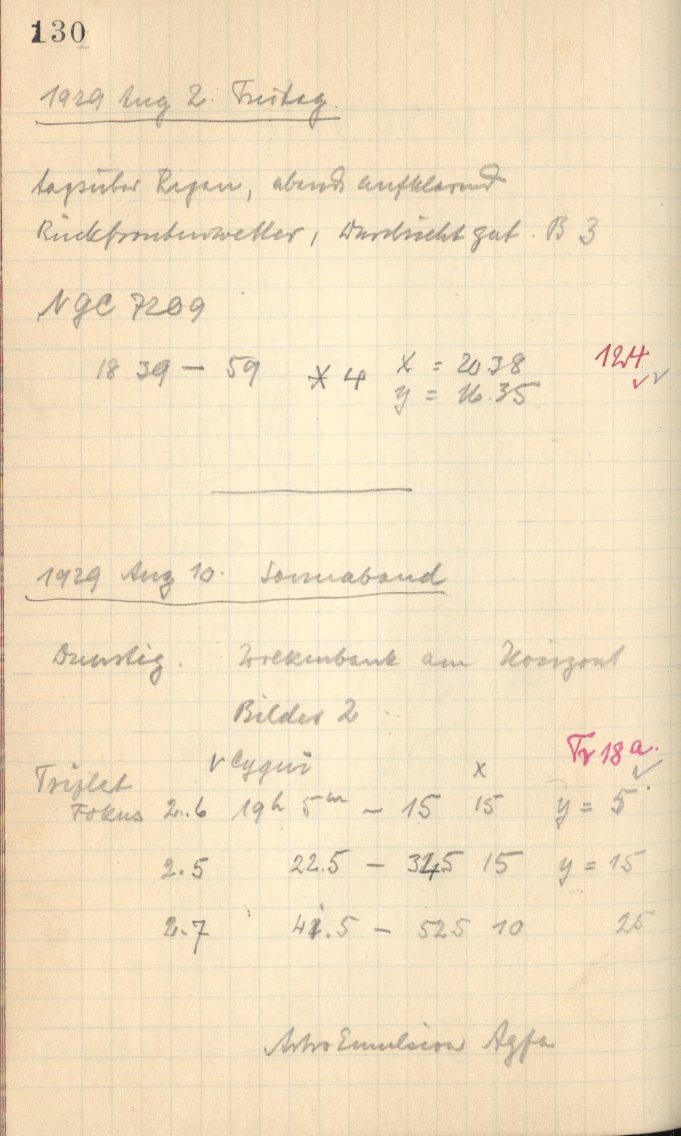 130
1929 Aug 2. Freitag.
tagsüber Regen, abends aufklarend
Rückfrontenwetter, Durchsicht gut. B 3
NGC 7209
18 39 — 59 * 4 x = 20 38 124
y = 16.35
1929 Aug 10. Sonnabend
Dunstig. Wolkenbank am Horizont
Bilder 2
Tr 18a.
Triplet ν Cygni x
Fokus 2.6 19h 5m — 15 15 y = 5
2.5 22.5 — 345 15 y = 15
2.7 42.5 — 525 10 25
Astro Emulsion Agfa